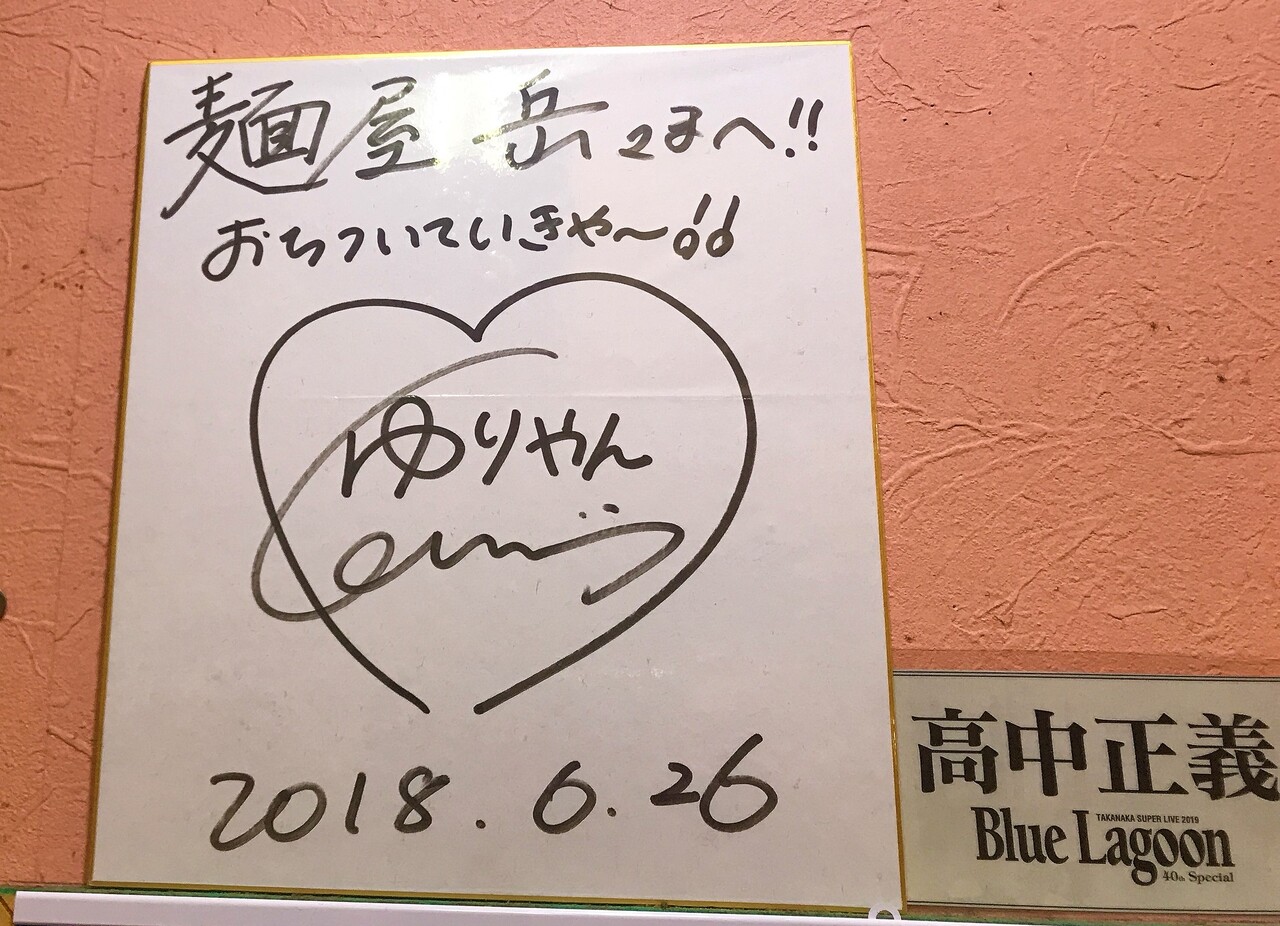 麺屋 岳 さまへ!!
おちついていきや〜!!
ゆりやん
2018.6.26
高中正義
TAKANAKA SUPER LIVE 2019
Blue Lagoon
40th Special